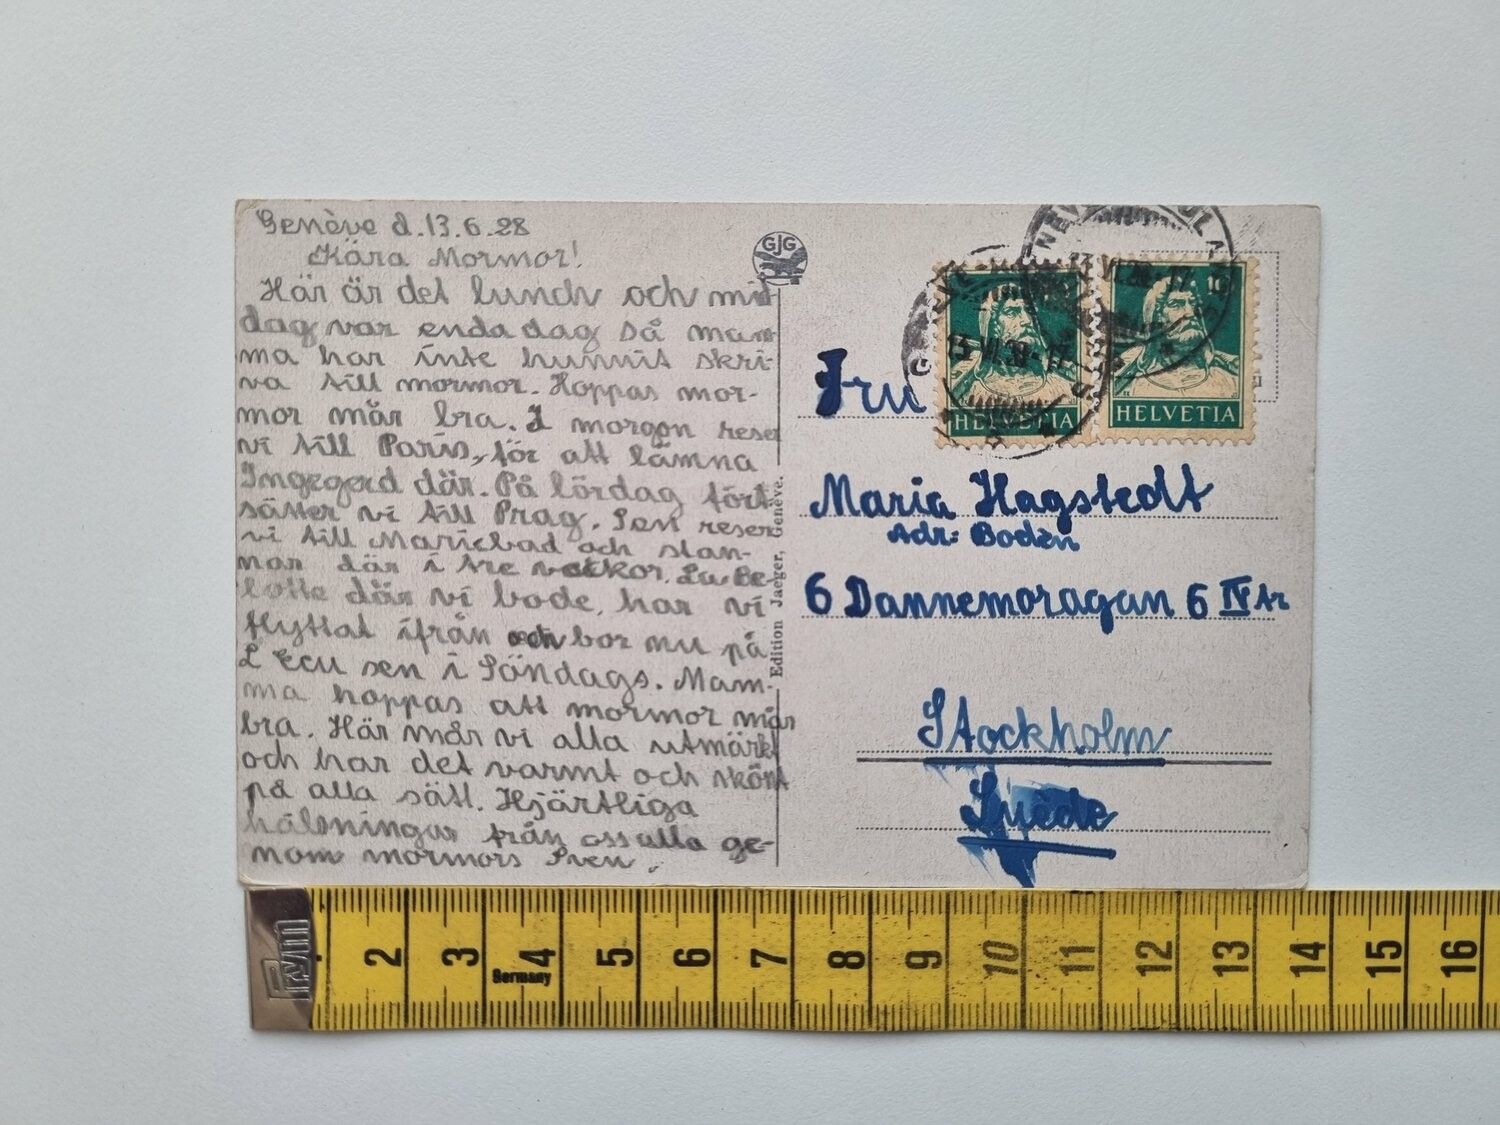 Genève d. 13.6.28
Kära Mormor!
Här är det lunch och mid
dag var enda dag så mam
ma har inte hunnit skri-
va till mormor. Hoppas mor-
mor mår bra. I morgon reser
vi till Paris, för att lämna
Ingegerd där. På lördag fort-
sätter vi till Prag. Sen reser
vi till Mariebad och stan-
nar där i tre veckor. La Be-
lotte där vi bode, har vi
flyttat ifrån och bor nu på
L Ecu sen i Söndags. Mam-
ma hoppas att mormor mår
bra. Här mår vi alla utmärkt
och har det varmt och skönt
på alla sätt. Hjärtliga
hälsningar från oss alla ge-
nom mormors Sven.
GJG
Edition Jaeger, Genève.
13 VI 28-17
13 VI 28-17
10
HELVETIA
HELVETIA
Fru
Maria Hagstedt
Adr: Bodén
6 Dannemoragan 6 IV tr
Stockholm
Suède
Prym
2 3 4 5 6 7 8 9 10 11 12 13 14 15 16
Germany